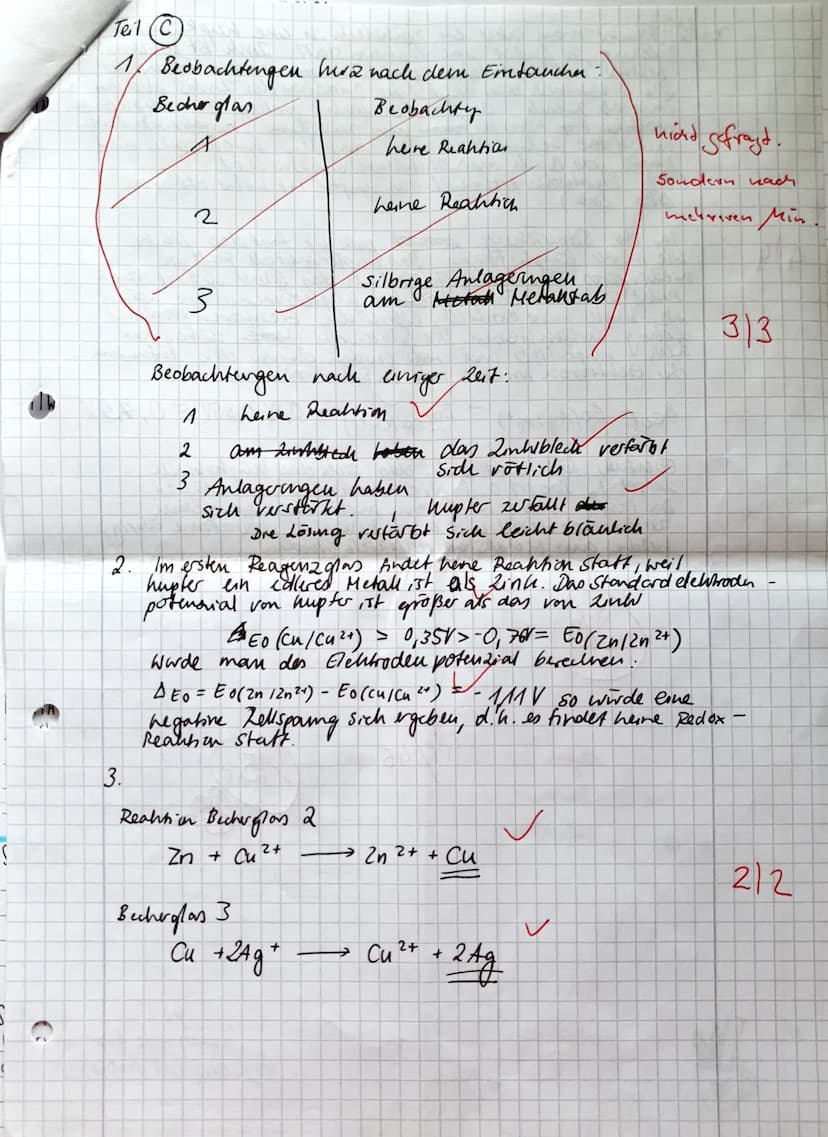 Teil C
1. Beobachtungen kurz nach dem Eintauchen:
Becherglas Beobachtung
1 keine Reaktion
nicht gefragt.
sondern nach
mehreren Min.
2 keine Reaktion
3 silbrige Anlagerungen
am Metallstab
3|3
Beobachtungen nach einiger Zeit:
1 keine Reaktion
2 das Zinkblech verfärbt
sich rötlich
3 Anlagerungen haben
sich verstärkt. , Kupfer zerfällt
Die Lösung verfärbt sich leicht bläulich
2. Im ersten Reagenzglas findet keine Reaktion statt, weil
Kupfer ein edleres Metall ist als Zink. Das Standardelektroden-
potenzial von Kupfer ist größer als das von Zink
E0(Cu/Cu2+) > 0,35V > -0,76V = E0(Zn/Zn2+)
Würde man das Elektrodenpotenzial berechnen:
ΔE0 = E0(Zn/Zn2+) - E0(Cu/Cu2+) = -1,11V so würde eine
negative Zellspannung sich ergeben, d.h. es findet keine Redox-
Reaktion statt.
3.
Reaktion Becherglas 2
Zn + Cu2+ → Zn2+ + Cu
2|2
Becherglas 3
Cu + 2Ag+ → Cu2+ + 2Ag